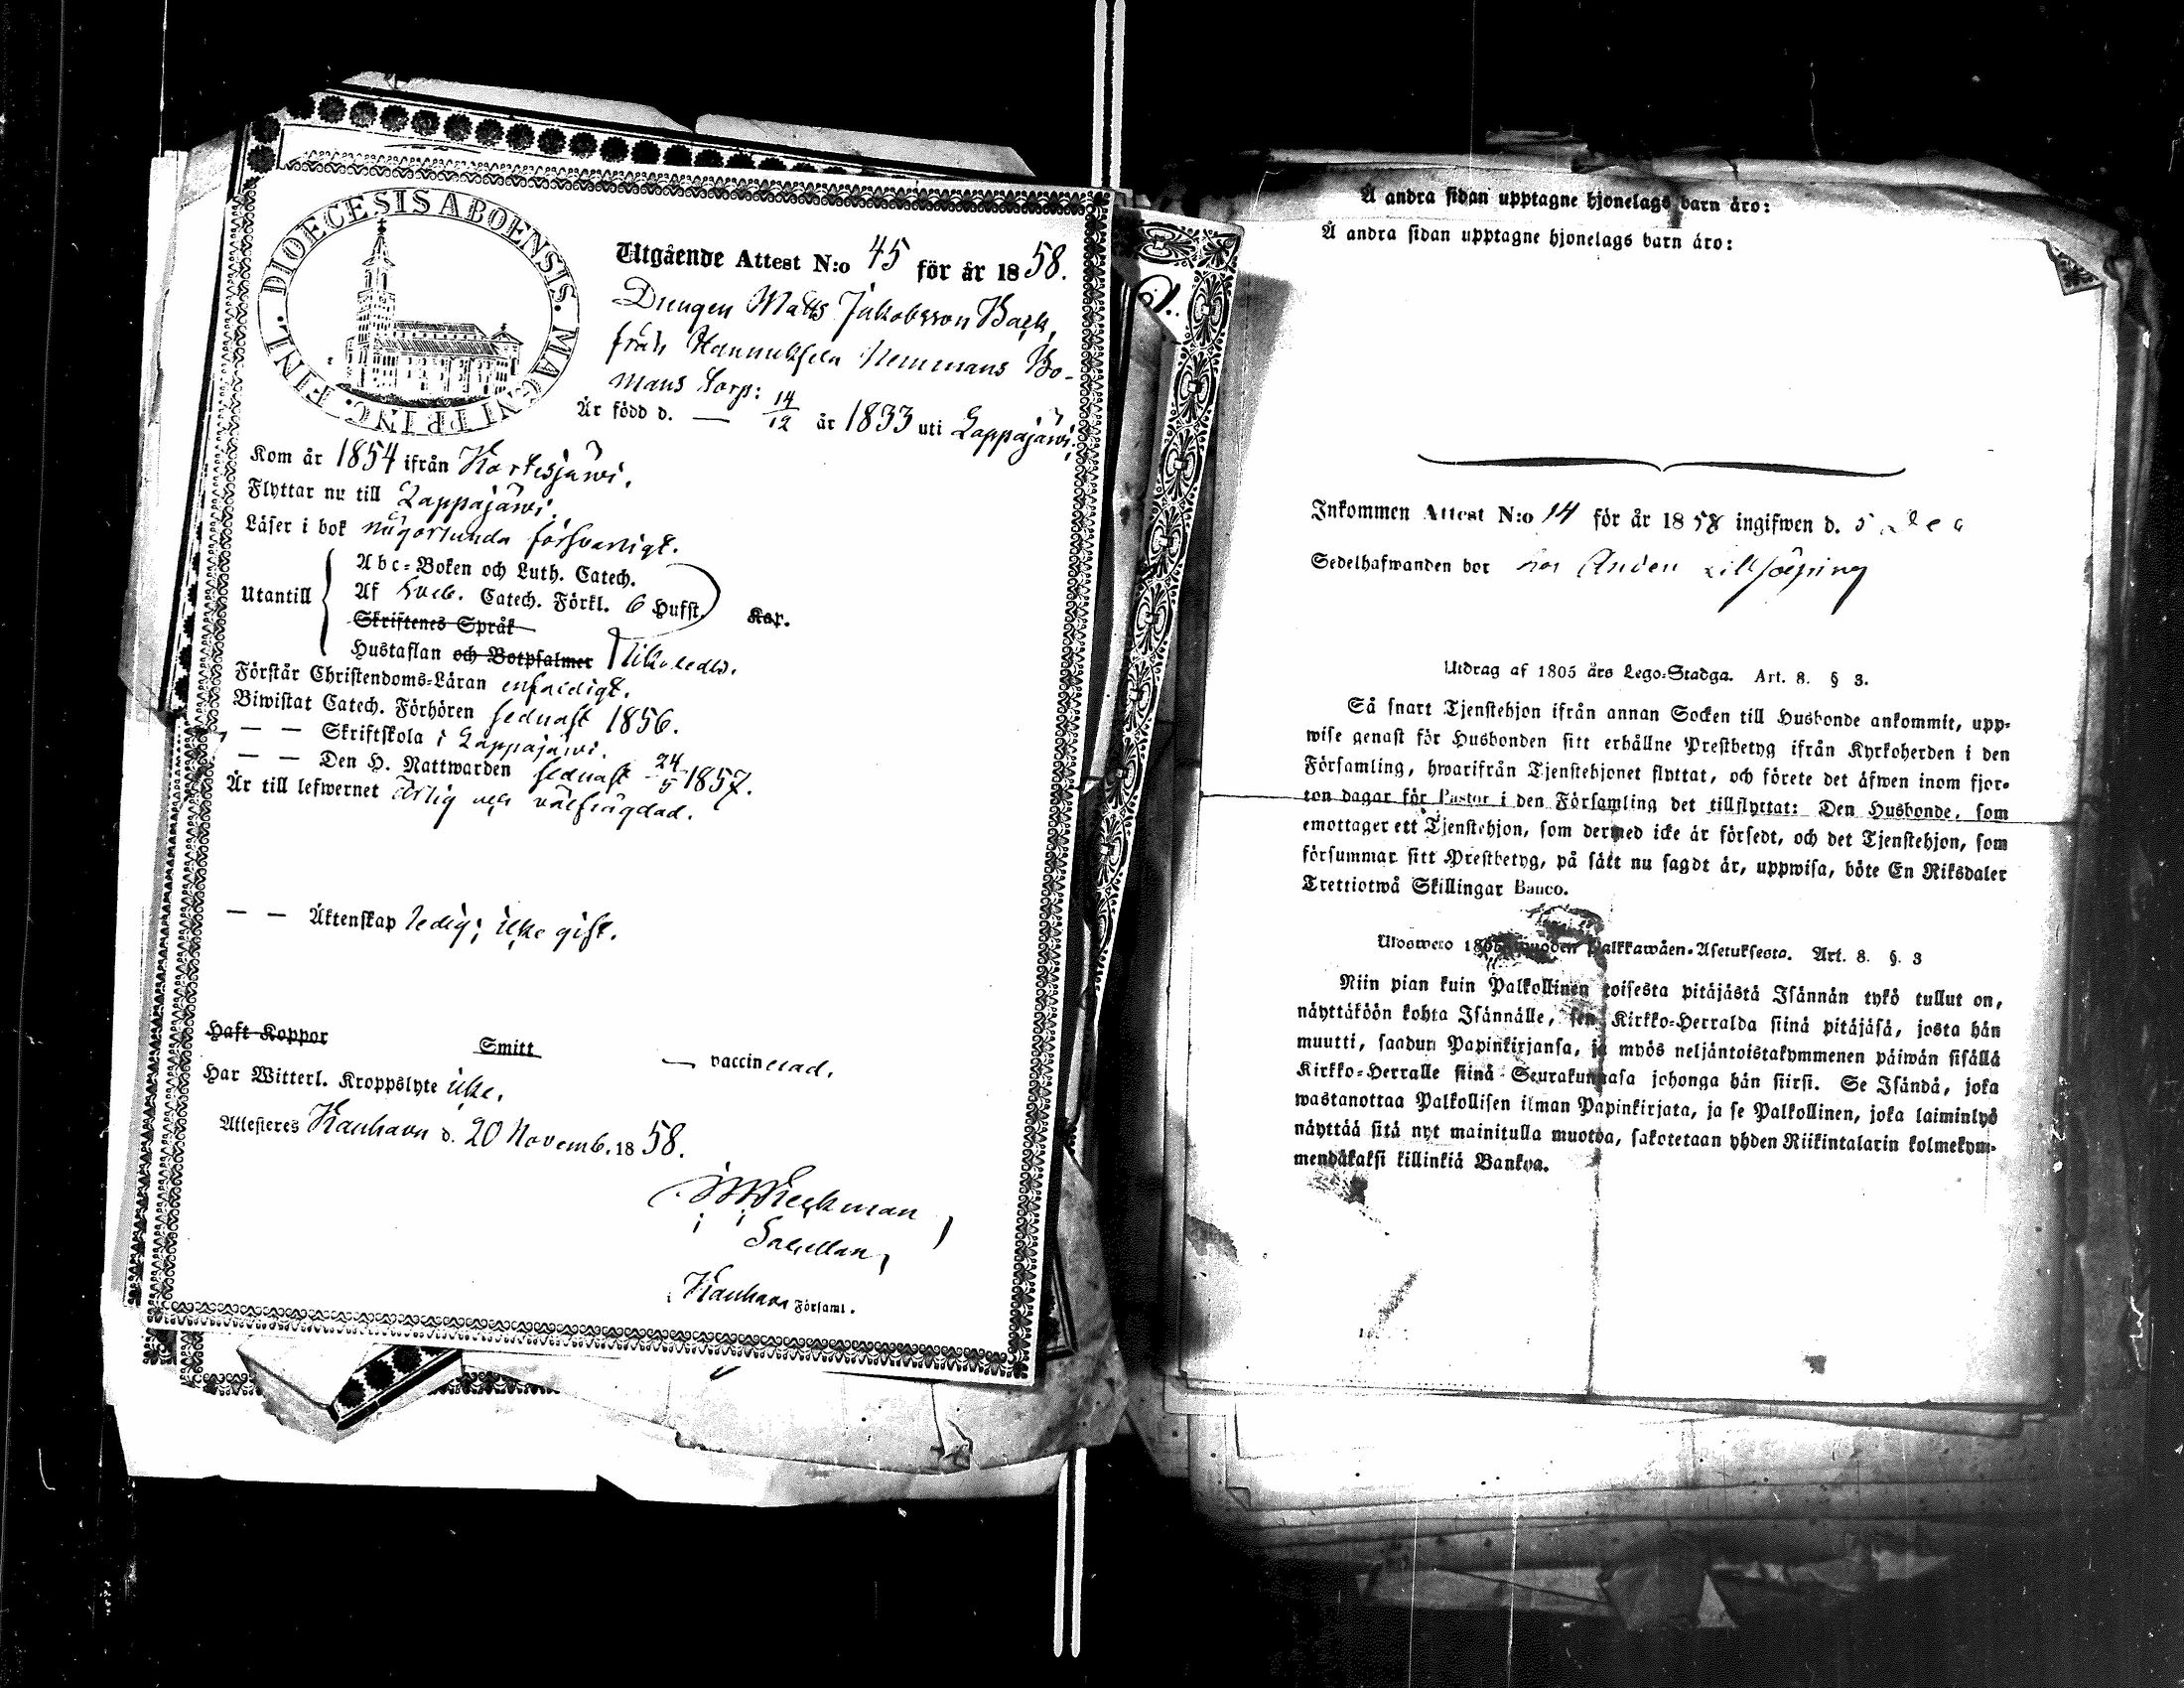 DIOECESIS ABOENSIS. MAGNI PRINC. FINL.
Utgående Attest N:o 45 för år 1858.
Drengen Matts Jakobsson Back,
från Hannuksela Hemmans Bo-
mans Torp:
Är född d. — 14/12 år 1833 uti Lappajärvi.
Kom år 1854 ifrån Kortesjärvi.
Flyttar nu till Lappajärvi.
Läser i bok någorlunda försvarligt.
Utantill
Abc-Boken och Luth. Catech.
Af Sveb. Catech. Förkl. 6 Hufst. Kap.
Skriftenes Språk
Hustaflan och Botpsalmer likaledes.
Förstår Christendoms-Läran enfaldigt.
Biwistat Catech. Förhören sednast 1856.
— — Skriftskola i Lappajärvi.
— — Den H. Nattwarden sednast 24/5 1857.
Är till lefwernet ärlig och välfrägdad.
— — Äktenskap ledig; icke gift.
Haft Koppor Smitt — vaccinerad.
Har Witterl. Kroppslyte icke.
Attesteres Kauhava d. 20 Novemb. 1858.
Sacellan,
Kauhava Församl.
Å andra sidan upptagne hjonelags barn äro:
Å andra sidan upptagne hjonelags barn äro:
Inkommen Attest N:o 14 för år 1858 ingifwen d. 5 Dec
Sedelhafwanden bor hos
Utdrag af 1805 års Lego-Stadga. Art. 8. § 3.
Så snart Tjenstehjon ifrån annan Socken till Husbonde ankommit, upp-
wise genast för Husbonden sitt erhållne Prestbetyg ifrån Kyrkoherden i den
Församling, hwarifrån Tjenstehjonet flyttat, och förete det äfwen inom fjor-
ton dagar för Pastor i den Församling det tillflyttat: Den Husbonde, som
emottager ett Tjenstehjon, som dermed icke är försedt, och det Tjenstehjon, som
försummar sitt Prestbetyg, på sätt nu sagdt är, uppwisa, böte En Riksdaler
Trettiotwå Skillingar Banco.
Ulosweto 1805 wuoden Palkkawäen-Asetuksesta. Art. 8. §. 3
Niin pian kuin Palkollinen toisesta pitäjästä Isännän tykö tullut on,
näyttäköön kohta Isännälle, sen Kirkko-Herralda siinä pitäjäsä, josta hän
muutti, saadun Papinkirjansa, ja myös neljäntoistakymmenen päiwän sisällä
Kirkko-Herralle siinä Seurakunnasa johonga hän siirsi. Se Isändä, joka
wastanottaa Palkollisen ilman Papinkirjata, ja se Palkollinen, joka laiminlyö
näyttää sitä nyt mainitulla muotoa, sakotetaan yhden Riikintalarin kolmekym-
mendäkaksi killinkiä Bankoa.